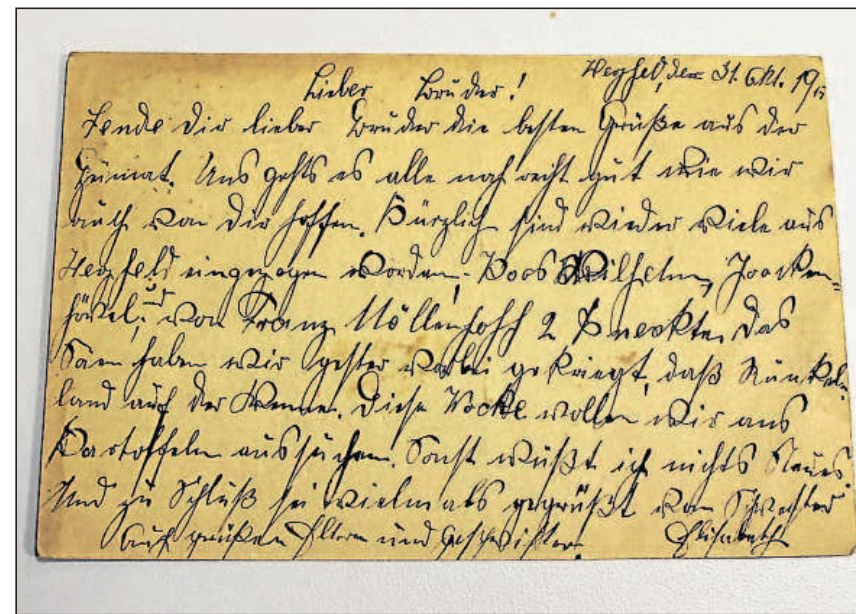 Herzfeld, den 31. Okt. 19
Lieber Bruder!
Sende Dir lieber Bruder die besten Grüße aus der
Heimat. Uns gehts es alle noch recht gut wie wir
auch von Dir hoffen. Kürzlich sind wieder viele aus
Herzfeld eingezogen worden, Wilhelm,
und von Franz Möllenhoff 2 Knechte. Das
Säen haben wir gester vorbei gekriegt, daß Runkel-
land auf der. Diese Woche wollen wir ans
Kartoffeln aussuchen. Sonst wüßt ich nichts Neues.
Und zu Schluß sei vielmals gegrüßt von Schwester
Auch grüßen Eltern und Geschwister. Elisabeth